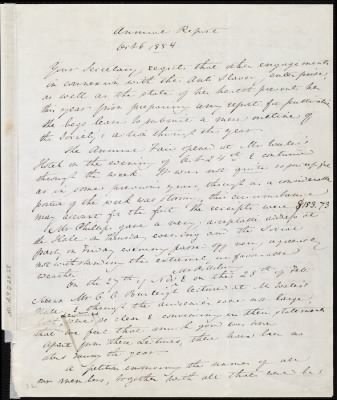 Annual Report
Oct 6 1854
Your Secretary regrets that other engagements
in connexion with the Anti Slavery enterprise,
as well as the state of her health prevent her
this year from preparing any report for publication
she begs leave to substitute a mere outline of
the Society's action through the year.
The Annual Fair opened at
Hall on the evening of 4th & continued
through the week. It was not quite
as in some previous years, though as a considerable
portion of the week was stormy, this circumstance
may account for the fact. The receipts were $183.73
Mr Phillips gave a very acceptable address at
the Hall, on Thursday evening and the
party on Friday evening passed off very agreeably,
notwithstanding the extremely unfavorable
weather.
On the 27th of Nov & on the 28th of Feb
Mr C. C. Burleigh lectured at
Hall. Though the audiences were not large,
so clear & convincing in their statements
that we feel that much good was done
Apart from these Lectures, there have been no
during the year.
A petition containing the names of all
our members, together with all that could be